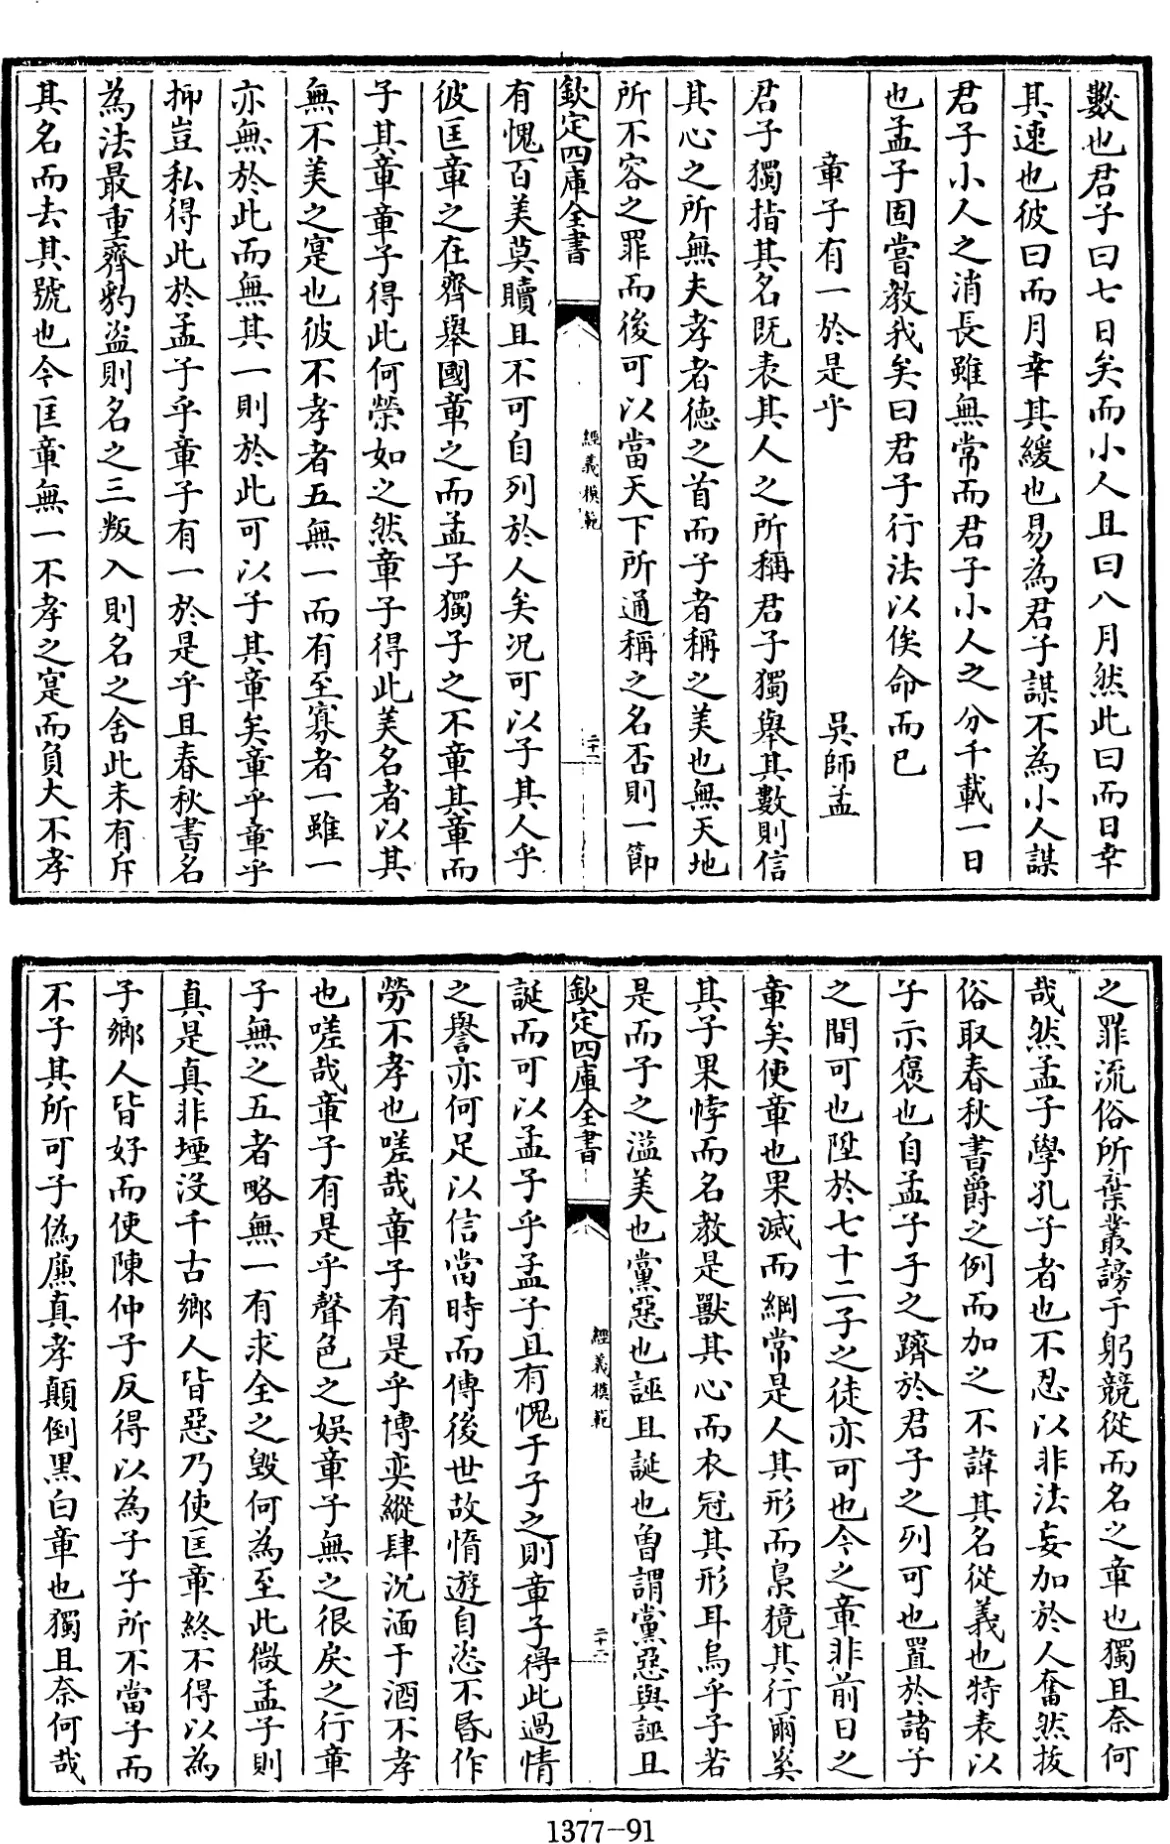 數也君子曰七日矣而小人且曰八月然此曰而日幸
其速也彼曰而月幸其緩也易為君子謀不為小人謀
君子小人之消長雖無常而君子小人之分千載一日
也孟子固嘗教我矣曰君子行法以俟命而已
章子有一於是乎 吳師孟
君子獨指其名既表其人之所稱君子獨舉其數則信
其心之所無夫孝者徳之首而子者稱之美也無天地
所不容之罪而後可以當天下所通稱之名否則一節
欽定四庫全書 經義模範 二十一
有愧百美莫贖且不可自列於人矣况可以子其人乎
彼匡章之在齊舉國章之而孟子獨子之不章其章而
子其章章子得此何榮如之然章子得此美名者以其
無不美之寔也彼不孝者五無一而有至寡者一雖一
亦無於此而無其一則於此可以子其章矣章乎章乎
抑豈私得此於孟子乎章子有一於是乎且春秋書名
為法最重齊豹盜則名之三叛入則名之舍此未有斥
其名而去其號也今匡章無一不孝之寔而負大不孝
之罪流俗所棄叢謗于躬競從而名之章也獨且奈何
哉然孟子學孔子者也不忍以非法妄加於人奮然拔
俗取春秋書爵之例而加之不諱其名從義也特表以
子示褒也自孟子子之躋於君子之列可也置於諸子
之間可也陞於七十二子之徒亦可也今之章非前日之
章矣使章也果滅而綱常是人其形而梟獍其行爾奚
其子果悖而名教是獸其心而衣冠其形耳烏乎子若
是而子之溢美也黨惡也誣且誕也曽謂黨惡與誣且
欽定四庫全書 經義模範 二十二
誕而可以孟子乎孟子且有愧于子之則章子得此過情
之譽亦何足以信當時而傳後世故惰遊自恣不昬作
勞不孝也嗟哉章子有是乎博奕縱肆沉湎于酒不孝
也嗟哉章子有是乎聲色之娛章子無之很戾之行章
子無之五者略無一有求全之毀何為至此微孟子則
真是真非堙沒千古鄉人皆惡乃使匡章終不得以為
子鄉人皆好而使陳仲子反得以為子子所不當子而
不子其所可子偽廉真孝顛倒黑白章也獨且奈何哉
1377—91